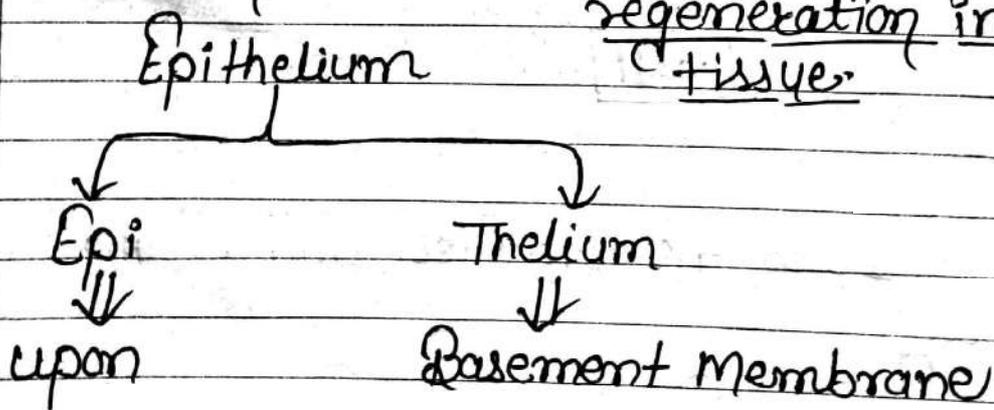 regeneration in
Epithelium
tissue.
Epi Thelium
upon Basement Membrane